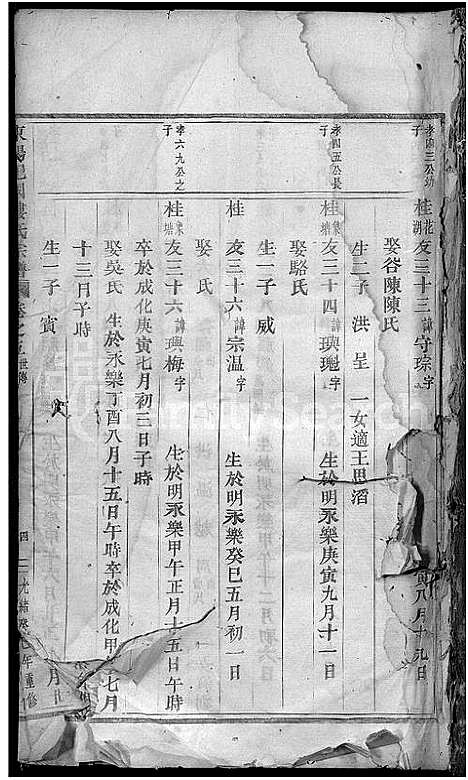 孝四三公幼子
桂花湖友三十三諱守琮字 寅八月十九日
娶谷陳陳氏
生二子 洪 呈 一女適王思滔
孝四五公長子
桂象塘友三十四諱璵瑰字 生於明永樂庚寅九月十一日
娶駱氏
生一子威
桂 友三十六諱宗溫字 生於明永樂癸巳五月初一日
娶 氏
孝六九公之子
桂象塘友三十六諱璵梅字 生於明永樂甲午正月十五日午時
卒於成化庚寅七月初三日子時
娶吳氏 生於永樂丁酉八月十五日午時卒於成化甲 七月
十三月子時
生一子 賓
四
光緒癸 年重修